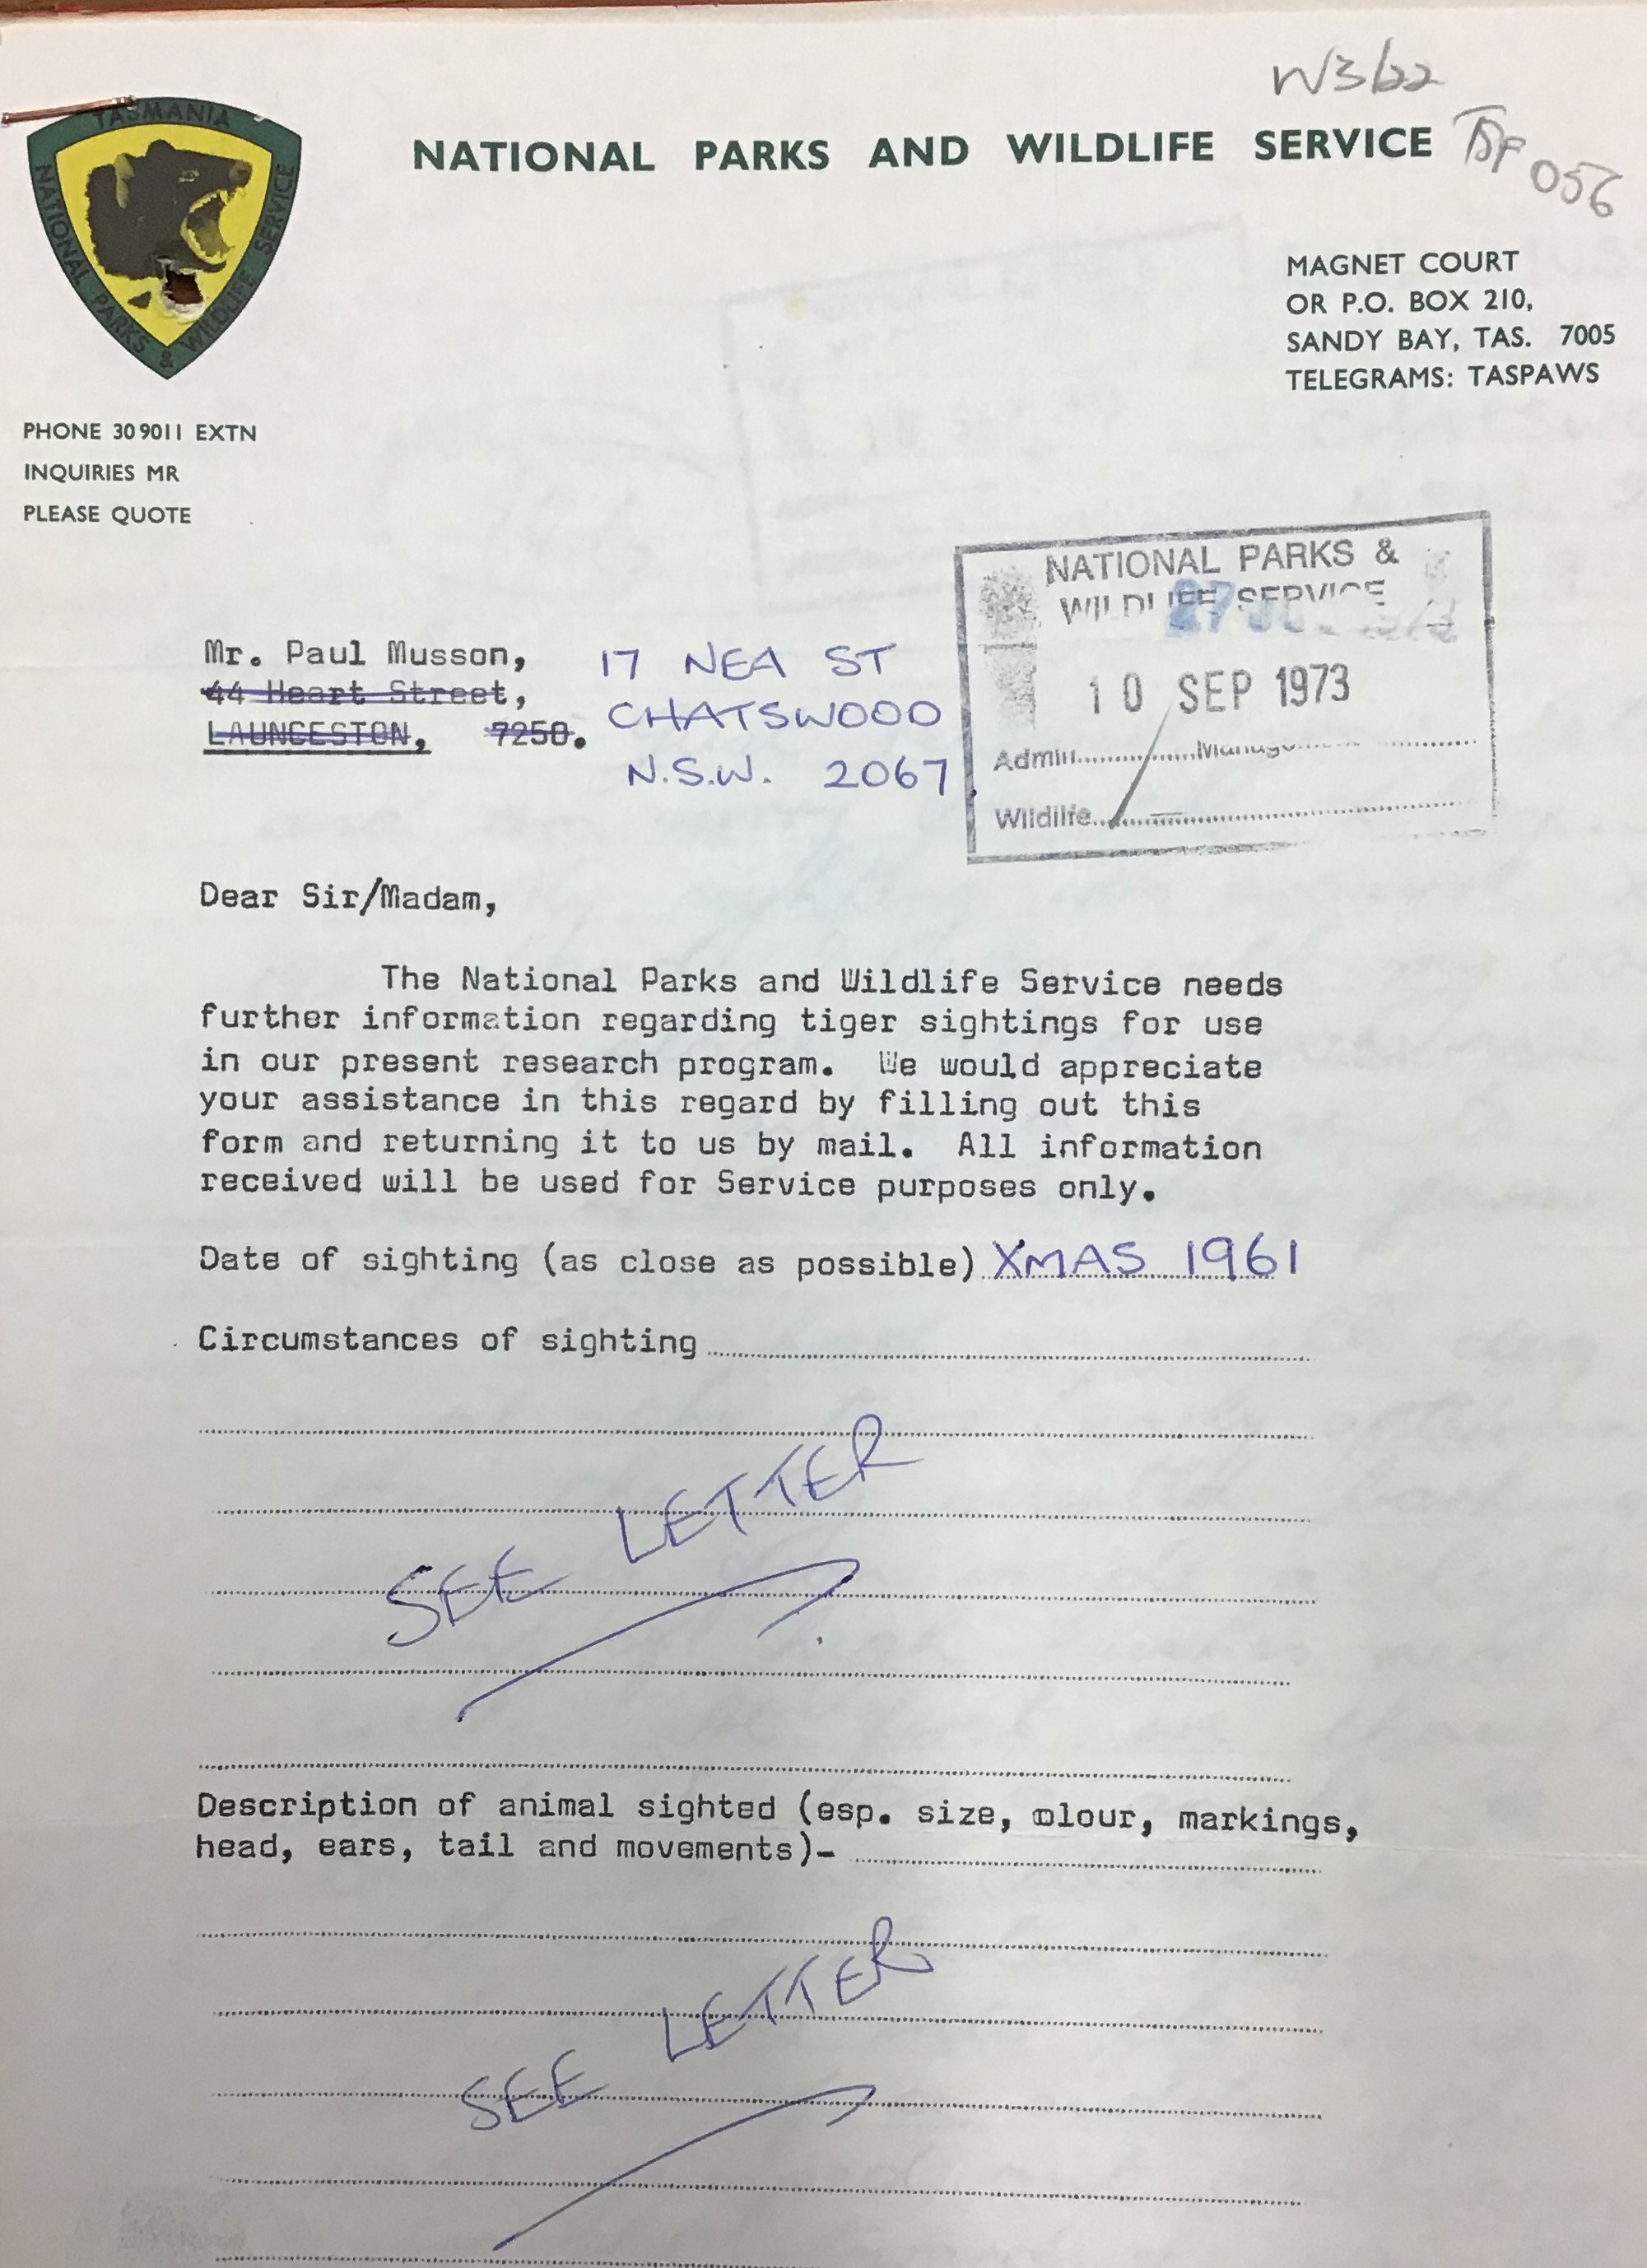 W3622
NATIONAL PARKS AND WILDLIFE SERVICE
056
TASMANIA
NATIONAL PARKS & WILDLIFE SERVICE
MAGNET COURT
OR P.O. BOX 210,
SANDY BAY, TAS. 7005
TELEGRAMS: TASPAWS
PHONE 30 9011 EXTN
INQUIRIES MR
PLEASE QUOTE
NATIONAL PARKS &
WILDLIFE SERVICE
27
10 SEP 1973
Admin..........Manag
Wildlife
Mr. Paul Musson,
44 Heart Street,
LAUNCESTON, 7250.
17 NEA ST
CHATSWOOD
N.S.W. 2067
Dear Sir/Madam,
The National Parks and Wildlife Service needs
further information regarding tiger sightings for use
in our present research program. We would appreciate
your assistance in this regard by filling out this
form and returning it to us by mail. All information
received will be used for Service purposes only.
Date of sighting (as close as possible) XMAS 1961
Circumstances of sighting
SEE LETTER
Description of animal sighted (esp. size, colour, markings,
head, ears, tail and movements)-
SEE LETTER